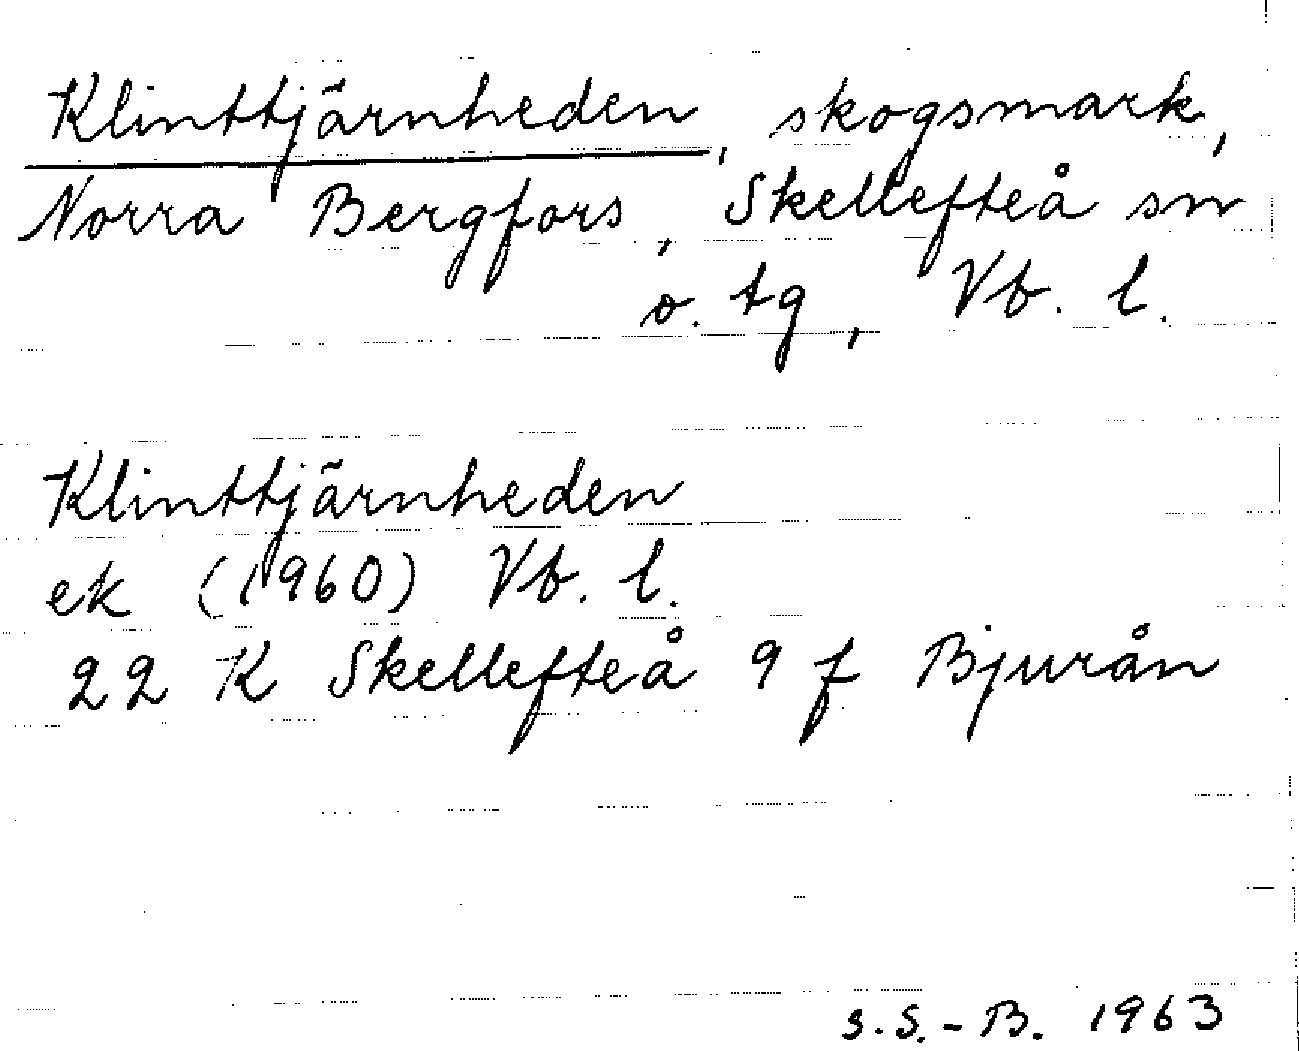 Klinttjärnheden, skogsmark,
Norra Bergfors, Skellefteå sn
o. tg, Vb. l.
Klinttjärnheden
ek (1960) Vb. l.
22 K Skellefteå 9 f Bjurån
S.S.-B. 1963